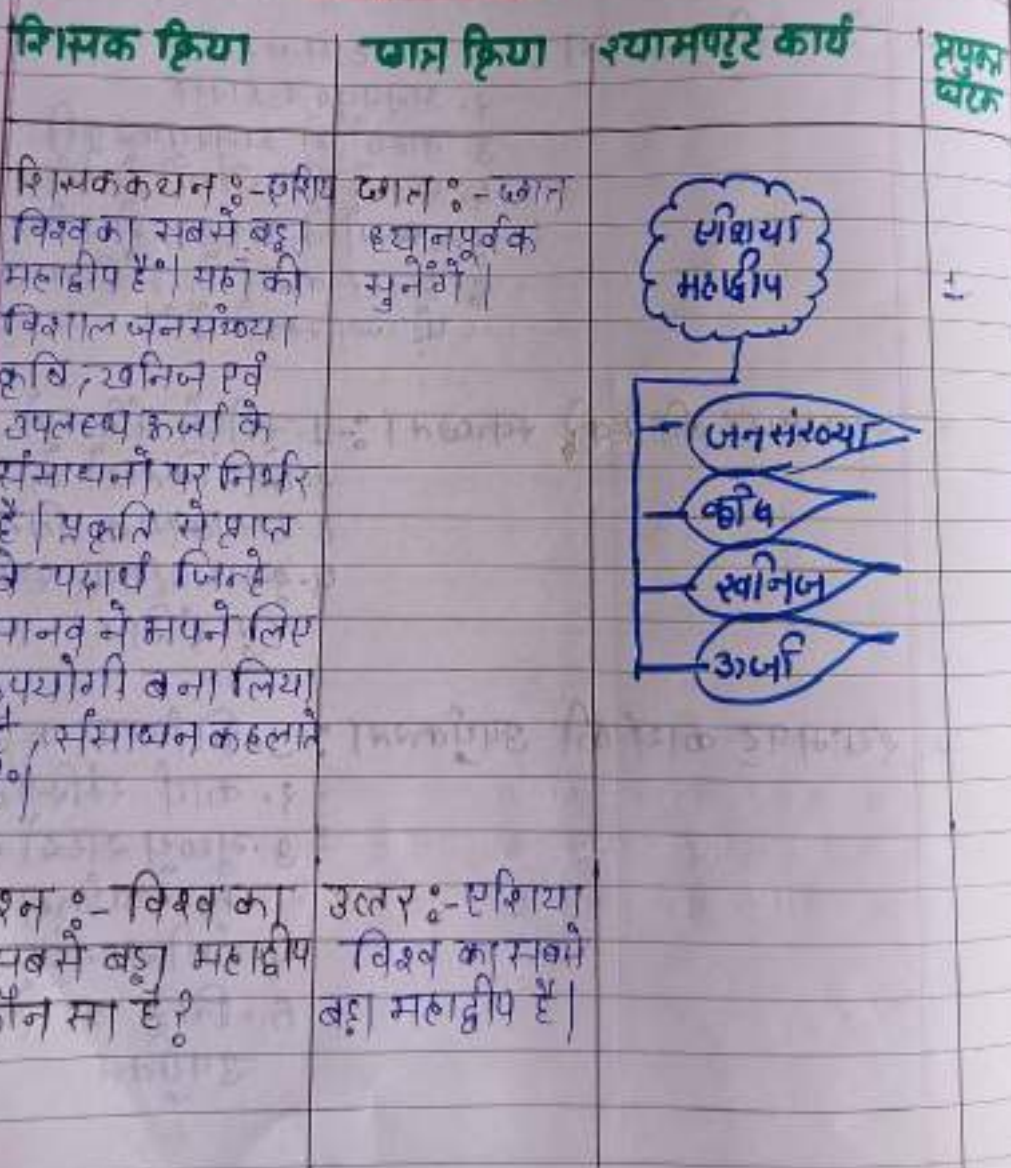 शिक्षक क्रिया
छात्र क्रिया
श्यामपट्ट कार्य
प्रयुक्त
घटक
शिक्षक कथन :- एशिय
विश्व का सबसे बड़ा
महाद्वीप है। यहां की
विशाल जनसंख्या
कृषि, खनिज एवं
उपलब्ध ऊर्जा के
संसाधनों पर निर्भर
है। प्रकृति से प्राप्त
वे पदार्थ जिन्हे
मानव ने अपने लिए
उपयोगी बना लिया
है, संसाधन कहलाते
है।
छात्र :- छात्र
ध्यानपूर्वक
सुनेंगे।
एशिया
महाद्वीप
जनसंख्या
कृषि
खनिज
ऊर्जा
प्रश्न :- विश्व का
सबसे बड़ा महाद्वीप
कौन सा है?
उत्तर :- एशिया
विश्व का सबसे
बड़ा महाद्वीप है।